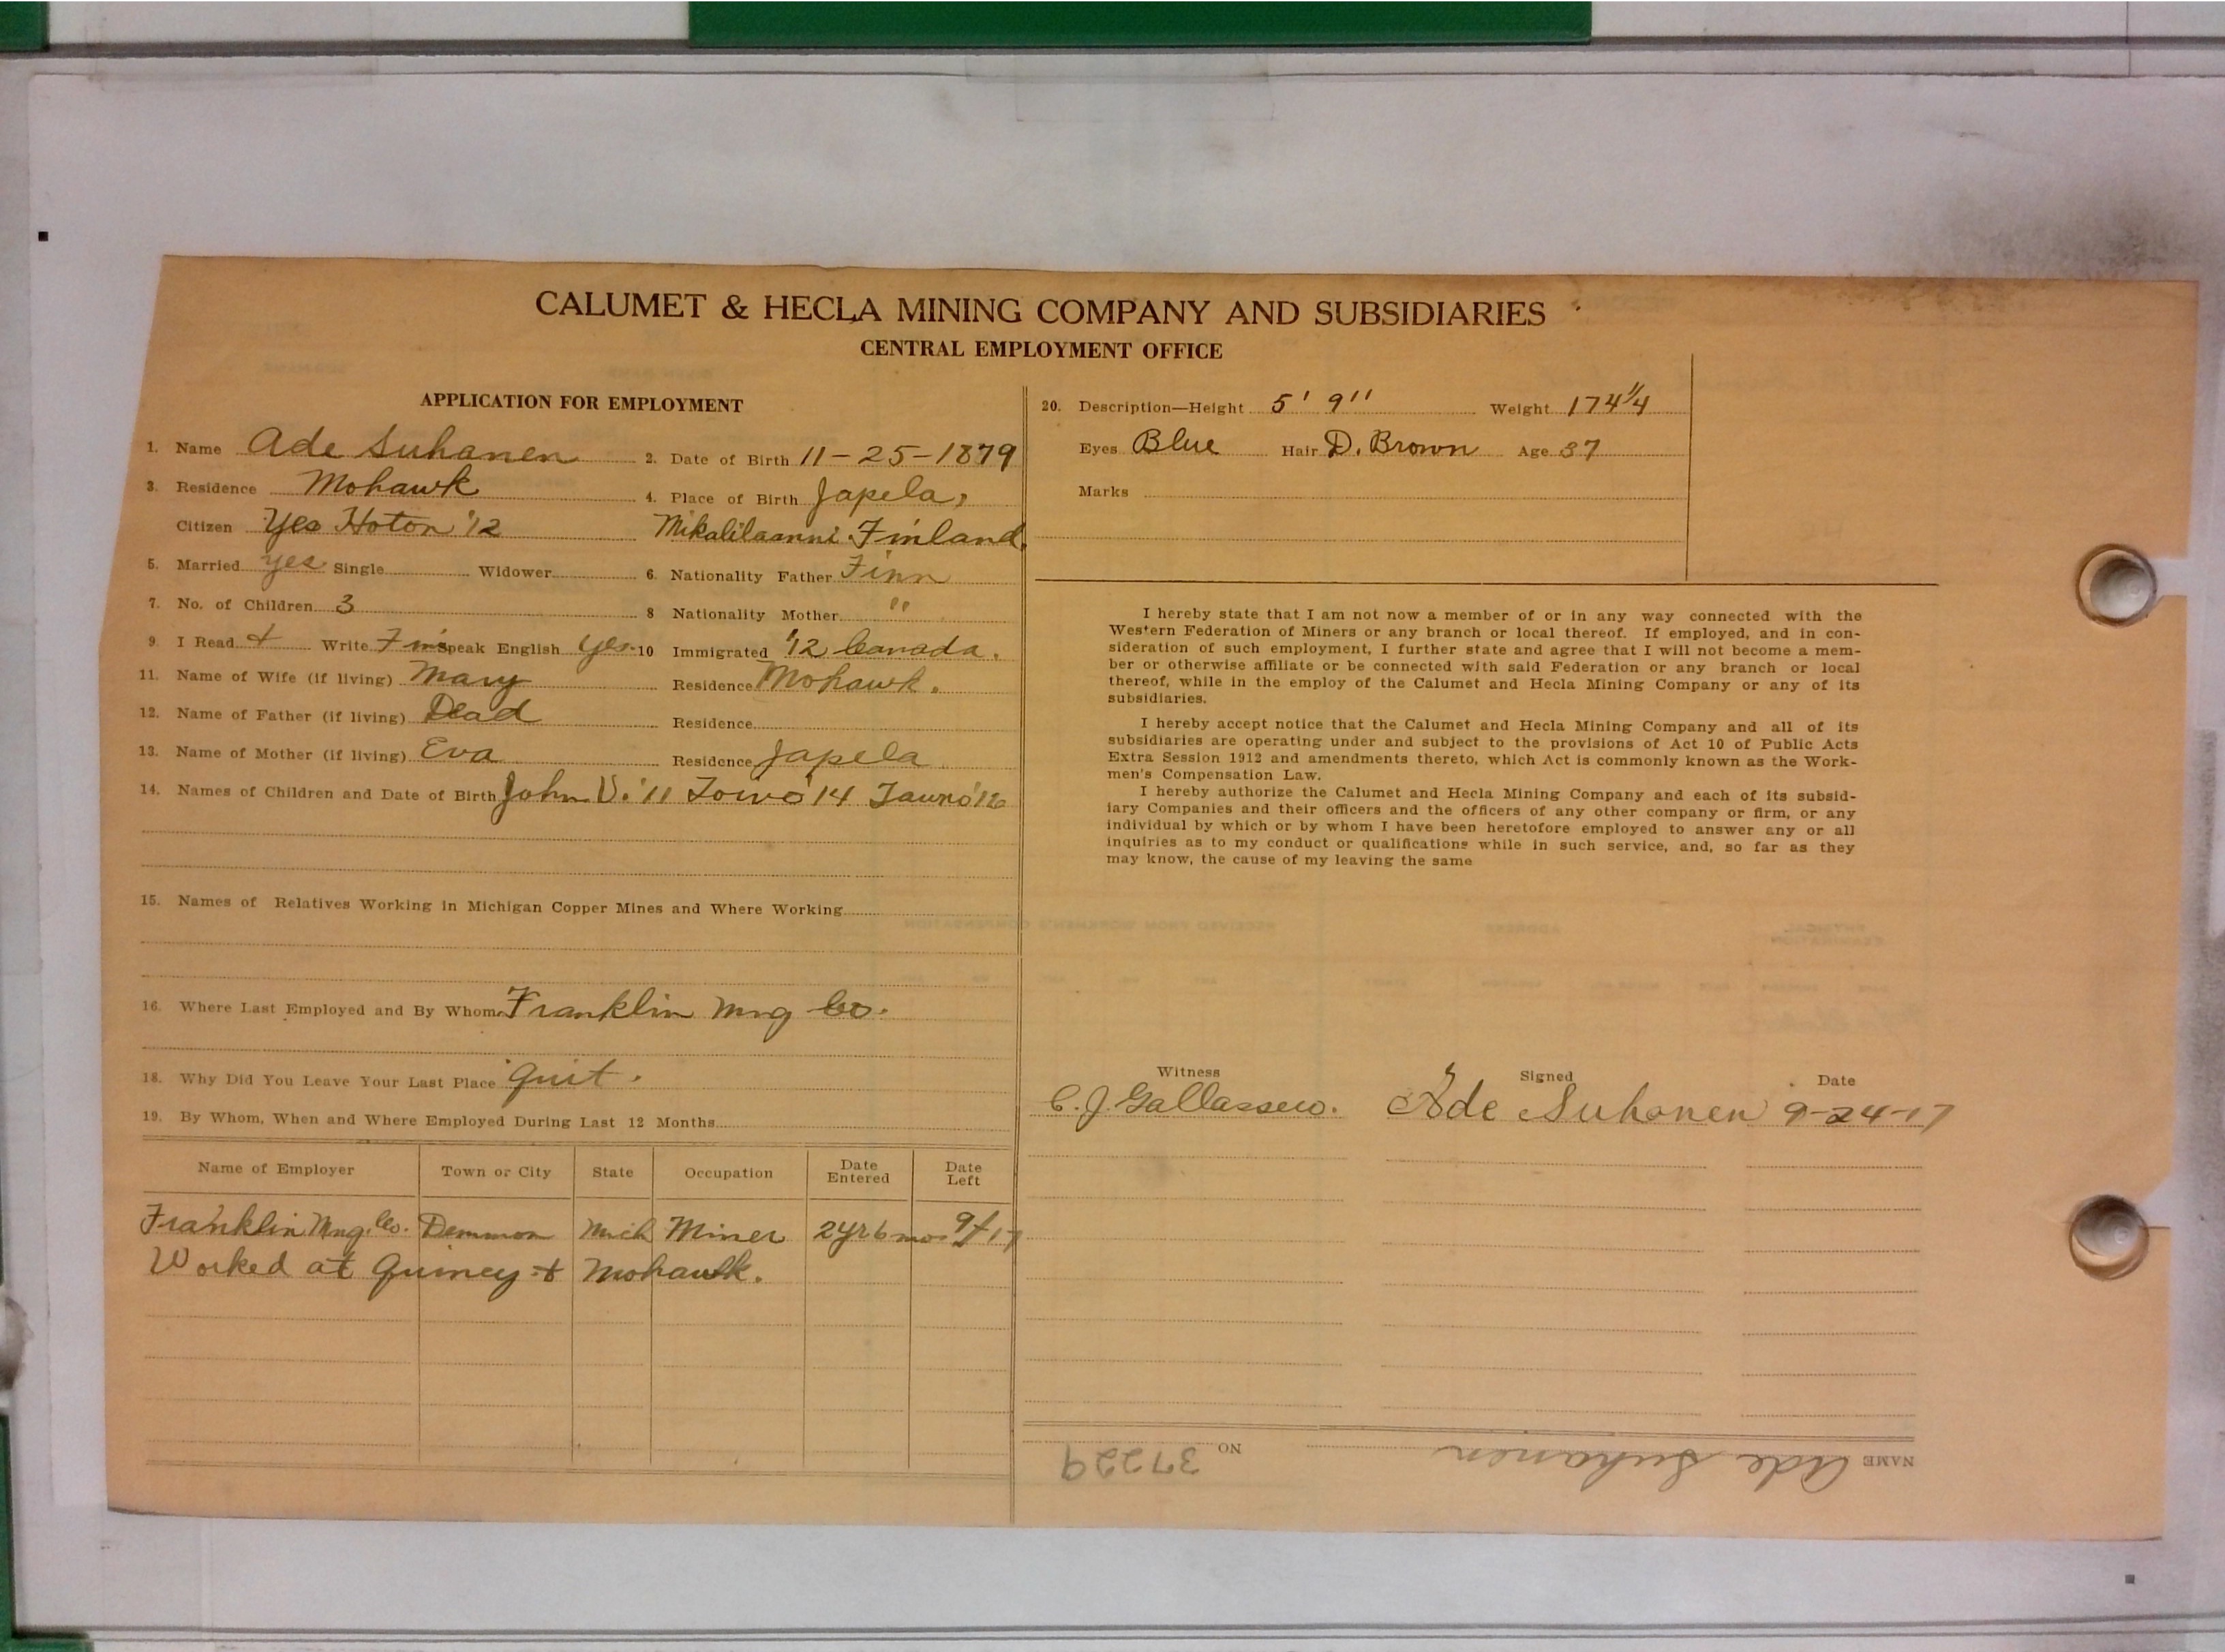 CALUMET & HECLA MINING COMPANY AND SUBSIDIARIES
CENTRAL EMPLOYMENT OFFICE
APPLICATION FOR EMPLOYMENT
1. Name Ade Suhanen 2. Date of Birth 11-25-1879
3. Residence Mohawk 4. Place of Birth Japela,
Citizen Yes Hoton '12 Mikalilaanni Finland.
5. Married yes Single Widower 6. Nationality Father Finn
7. No. of Children 3 8 Nationality Mother "
9. I Read + Write Finn Speak English Yes. 10 Immigrated '12 Canada.
11. Name of Wife (if living) Mary Residence Mohawk.
12. Name of Father (if living) Dead Residence
13. Name of Mother (if living) Eva Residence Japela
14. Names of Children and Date of Birth John V. '11 Toivo '14 Tauno '16
15. Names of Relatives Working in Michigan Copper Mines and Where Working
16. Where Last Employed and By Whom Franklin Mng Co.
18. Why Did You Leave Your Last Place quit.
19. By Whom, When and Where Employed During Last 12 Months
Name of Employer Town or City State Occupation Date Entered Date Left
Franklin Mng. Co. Demmon Mich Miner 2yr 6mos 9/17
Worked at Quincy + Mohawk.
20. Description—Height 5' 9" Weight 174 1/4
Eyes Blue Hair D. Brown Age 37
Marks
I hereby state that I am not now a member of or in any way connected with the
Western Federation of Miners or any branch or local thereof. If employed, and in con-
sideration of such employment, I further state and agree that I will not become a mem-
ber or otherwise affiliate or be connected with said Federation or any branch or local
thereof, while in the employ of the Calumet and Hecla Mining Company or any of its
subsidiaries.
I hereby accept notice that the Calumet and Hecla Mining Company and all of its
subsidiaries are operating under and subject to the provisions of Act 10 of Public Acts
Extra Session 1912 and amendments thereto, which Act is commonly known as the Work-
men's Compensation Law.
I hereby authorize the Calumet and Hecla Mining Company and each of its subsid-
iary Companies and their officers and the officers of any other company or firm, or any
individual by which or by whom I have been heretofore employed to answer any or all
inquiries as to my conduct or qualifications while in such service, and, so far as they
may know, the cause of my leaving the same
Witness Signed Date
C. J. Gallasseu. Ade Suhonen 9-24-17
NAME Ade Suhanen NO 37229